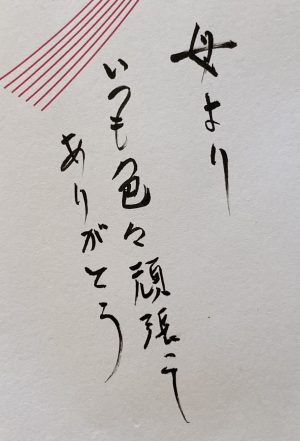 母より
いつも色々頑張って
ありがとう